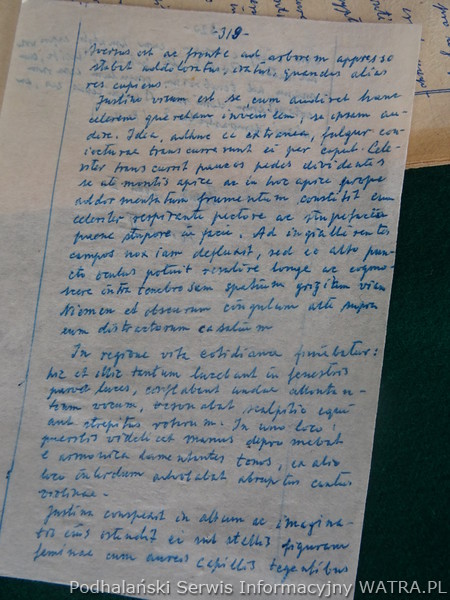 -319-
versus est ac fronte ad arborem appresso
stabat addoloratus, iratus, quandus alias
res cupiens.
Justina visum est se cum audiret hanc
celerem querelam invenilem, se ipsam au-
dire. Idea, adhuc ea extranea, fulgur con-
iecturae transcurrerunt ei per caput. Cele-
riter transcurrit paucos pedes dividentes
se a montis apice ac in hoc apice prope
addormentatum frumentum constitit cum
celeriter respirante pectore ac stupefacta
paene stupore in facie. Ad
campos nox iam defluxit, sed ex alto pun-
cto oculus potuit longe ac cogno-
scere intra tenebrosam spatium viam
Niemen et obscurum cingulum alti supra
eum distractorum casalium
In regione vita cotidiana finiebatur:
hac et illic tantum lucebant in fenestris
parvae luces, conflabant undae allontana-
tium vocum, resonabat scalpitio equi
aut strepitus rotorum. In uno loco
videlicet manus depromebat
e armonica lamentantes tonos, ex alio
loco interdum advolabat abruptus cantus
violinae.
Justina conspexit in altum ac imagina-
tio eius ostendit ei sub stellis figuram
feminae cum aureis capillis tegentibus
Podhalański Serwis Informacyjny WATRA.PL